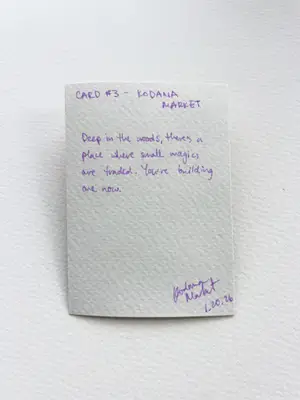 CARD #3 - KODANA
MARKET
Deep in the woods, there's a
place where small magics
are traded. You're building
one now.
Kodama
Market
1.20.26